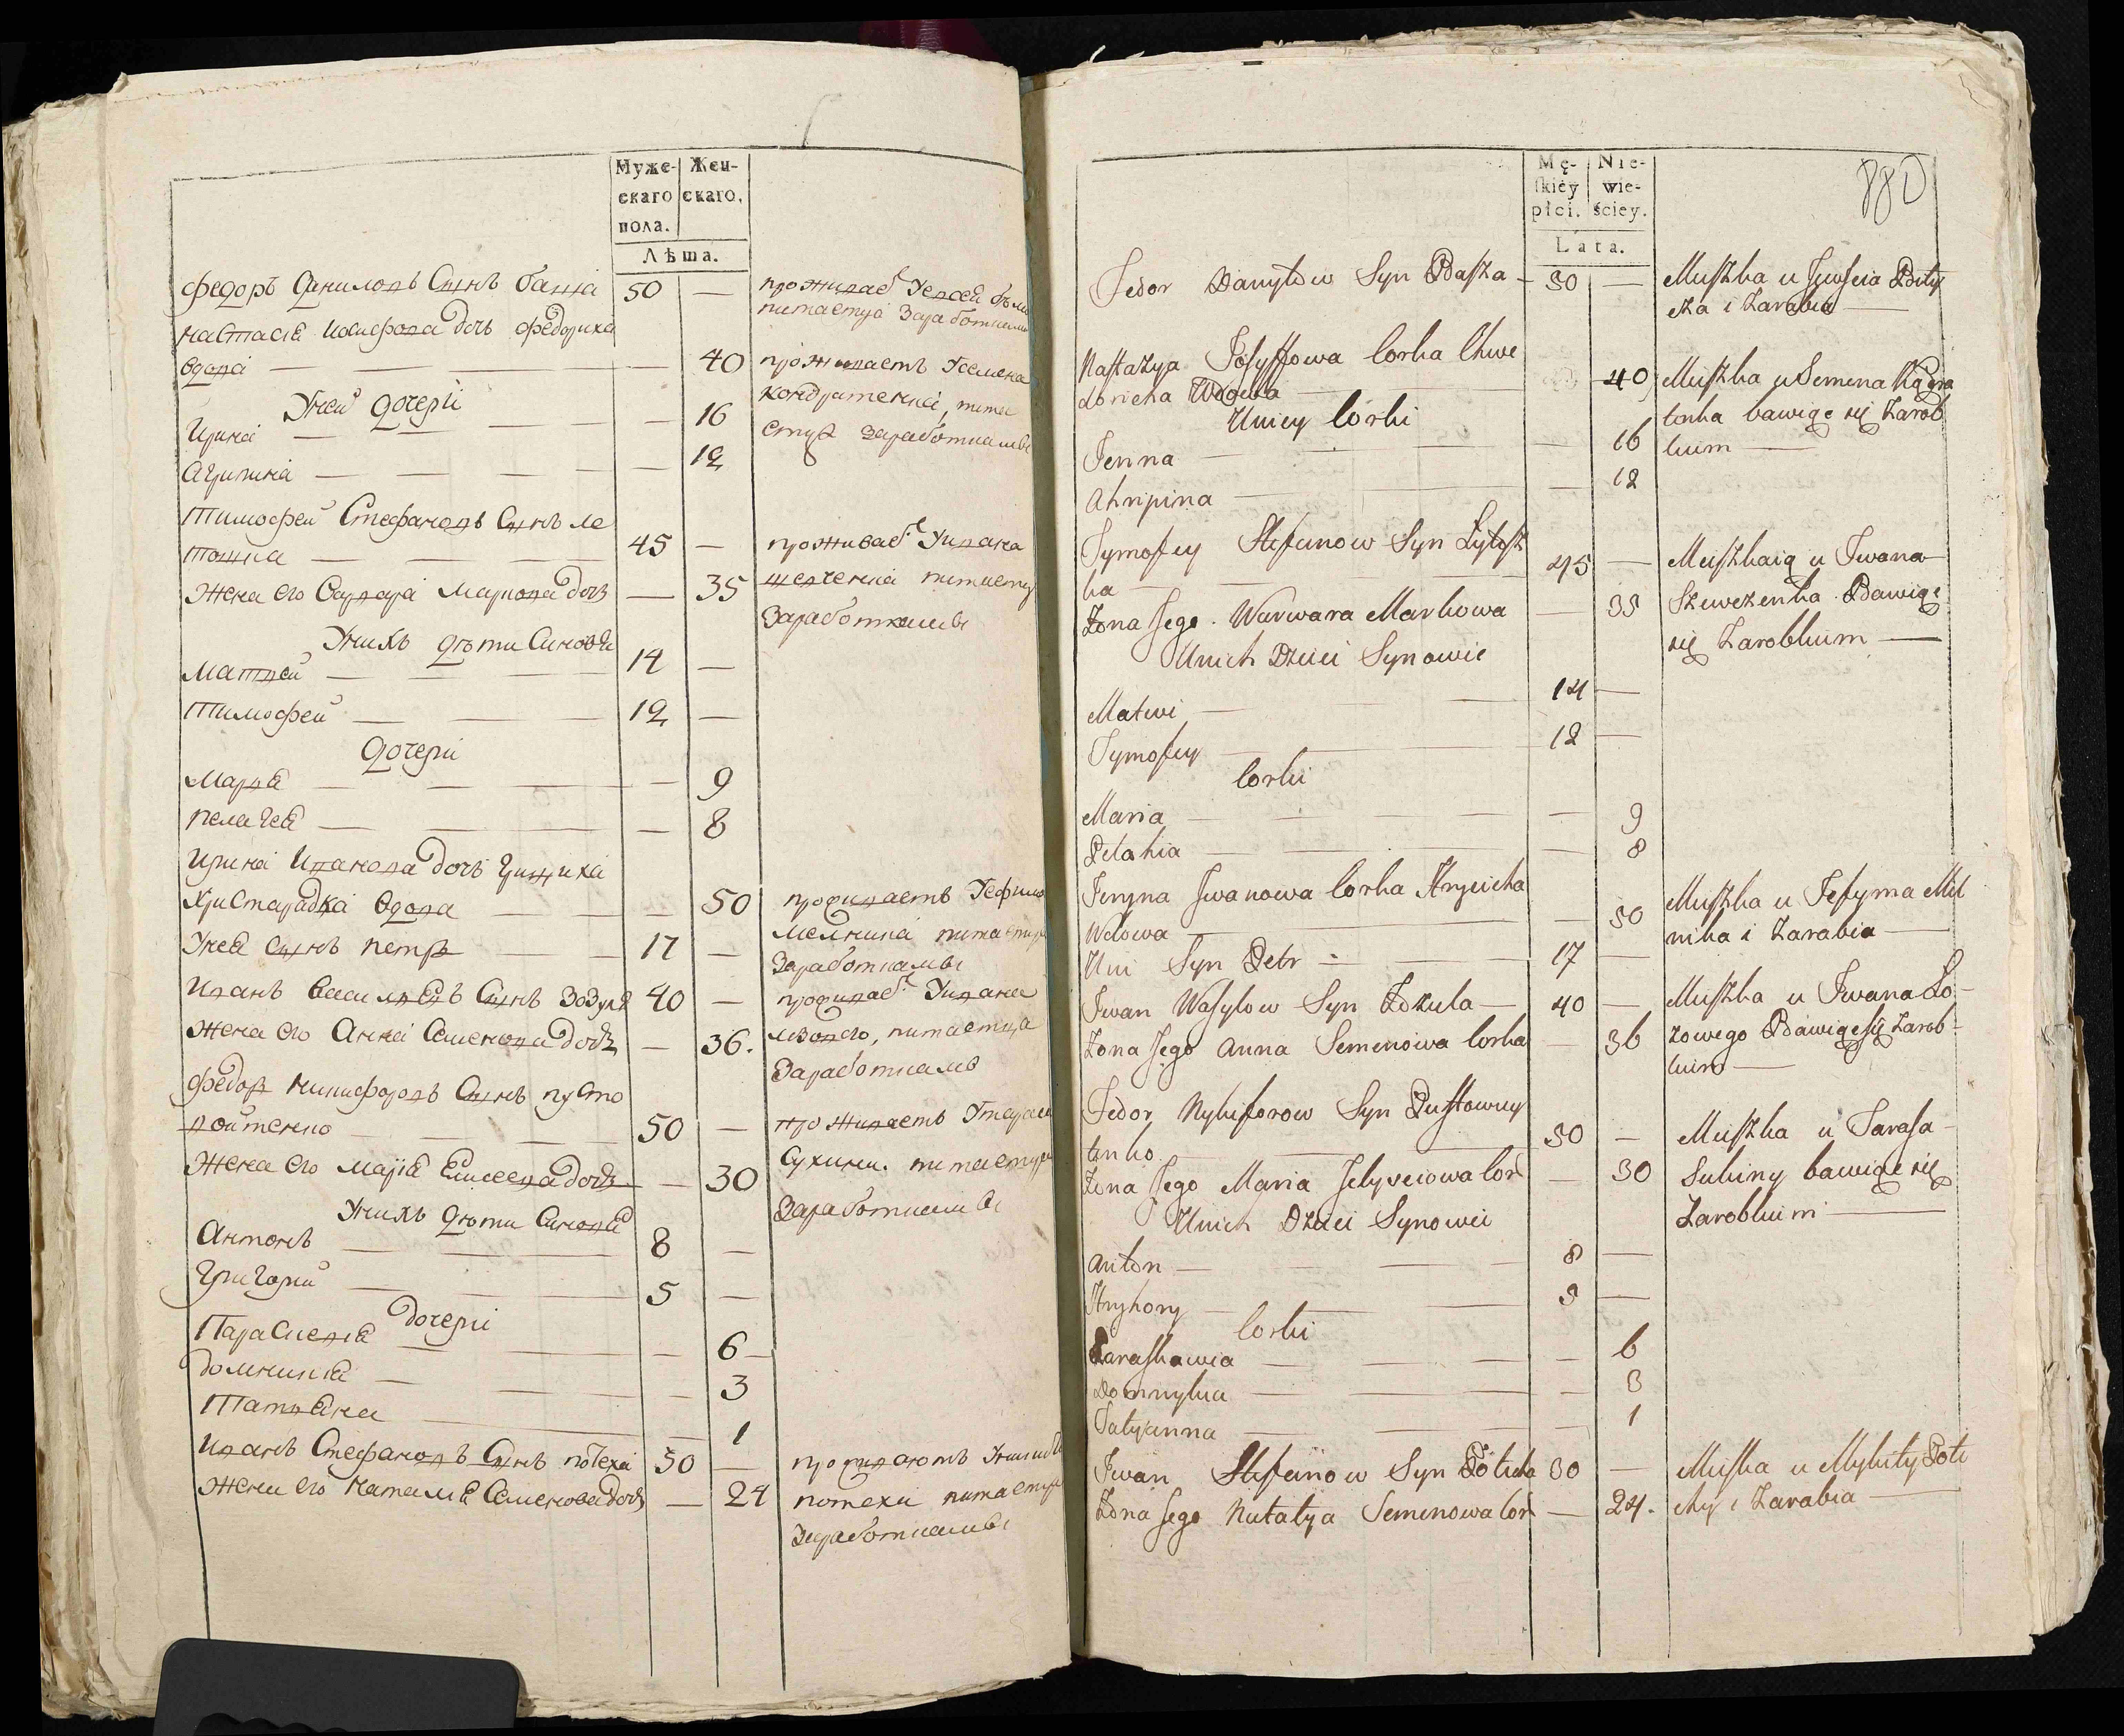 Муже-
скаго
пола.
Жен-
скаго.
Лѣта.
Федоръ Даниловъ Сынъ баша 50 —
проживаеть Уевсея
питаетца Заработками
Настасія Иосифова дочь Федориха
вдова — — — 40
проживаетъ Усемена
Кондратенка, пита
етца Заработками
Унеи дочери
Ирина — — — 16
Агрипина — — — 12
Тимофей Стефановъ Сынъ ле
тошка — — 45 —
проживае Уивана
шевченка питаетца
Заработками
Жена его Варвара Маркова дочь — 35
Унихъ дѣти Синовя
Матвей — — 14 —
Тимофей — — 12 —
Дочери
Марія — — — 9
Пелагея — — — 8
Ирина Иванова дочь Грициха
Христарадка вдова — — 50
проживаетъ Уефима
Мелника питаетца
Заработками
Унея сынъ петръ — — 17 —
Иванъ Василіевъ Сынъ Зозуля 40 —
проживае Уивана
Лозового, питаетца
Заработками
Жена его Анна Семенова дочь — 36.
Федоръ Никифоровъ Сынъ пусто
войтенко — — 50 —
проживаетъ Утараса
Сухини. питаетца
Заработками
Жена его Марія Елисеева дочь — 30
Унихъ дѣти Синовя
Антонъ — — 8 —
Григорий — — 5 —
Дочери
Параскевія — — — 6 —
Домникія — — — 3
Татіяна — — 1
Иванъ Стефановъ Сынъ потеха 30 —
проживаютъ Уникиты
потехи питаетца
Заработками
Жена его Наталія Семенова дочь — 24
880
Mę-
skiéy
płci.
Nie-
wie-
ściey.
Lata.
Fedor Danyłow Syn Baszа — 50 —
Mieszka u Jewseia
i Zarabia —
Nastazya Josyffowa Corka Chwe
doricha Wdowa — 40
Mieszka u Semena Kądra
tenka bawiąc się Zarob
kiem —
Uniey Corki
Jerina — — — 16
Ahripina — — — 12
Tymofey Stefanow Syn Lytosz
ka — — 45 —
Mieszkaią u Iwana
Szewczenka Bawiąc
się Zarobkiem —
Zona Jego Warwara Markowa — 35
Unich Dzieci Synowie
Matwi — — 14 —
Tymofey — — 12 —
Corki
Maria — — — 9
Pelahia — — — 8
Jeryna Iwanowa Corka Hrycicha
Wdowa — — 50
Mieszka u Jefyma Mel
nika i Zarabia —
Uni Syn Petr — — 17 —
Iwan Wasylow Syn Zozula — 40 —
Mieszka u Iwana Lo-
zowego Bawiąc się Zarob-
kiem —
Zona Jego Anna Semenowa Corka — 36
Fedor Nykiforow Syn Pustowuy
tenko — 50 —
Mieszka u Tarasa
Suhiny bawiąc się
Zarobkiem —
Zona Jego Maria Jelyseiowa Cor — 30
Unich Dzieci Synowie
Anton — — 8 —
Hryhory — — 5 —
Corki
Paraskawia — — — 6
Domnykia — — — 3
Tatyanna — — — 1
Iwan Stefanow Syn Potecha 30 —
Mieszka u Mykity Pote
chy i Zarabia —
Zona Jego Natalya Semenowa Cor — 24.